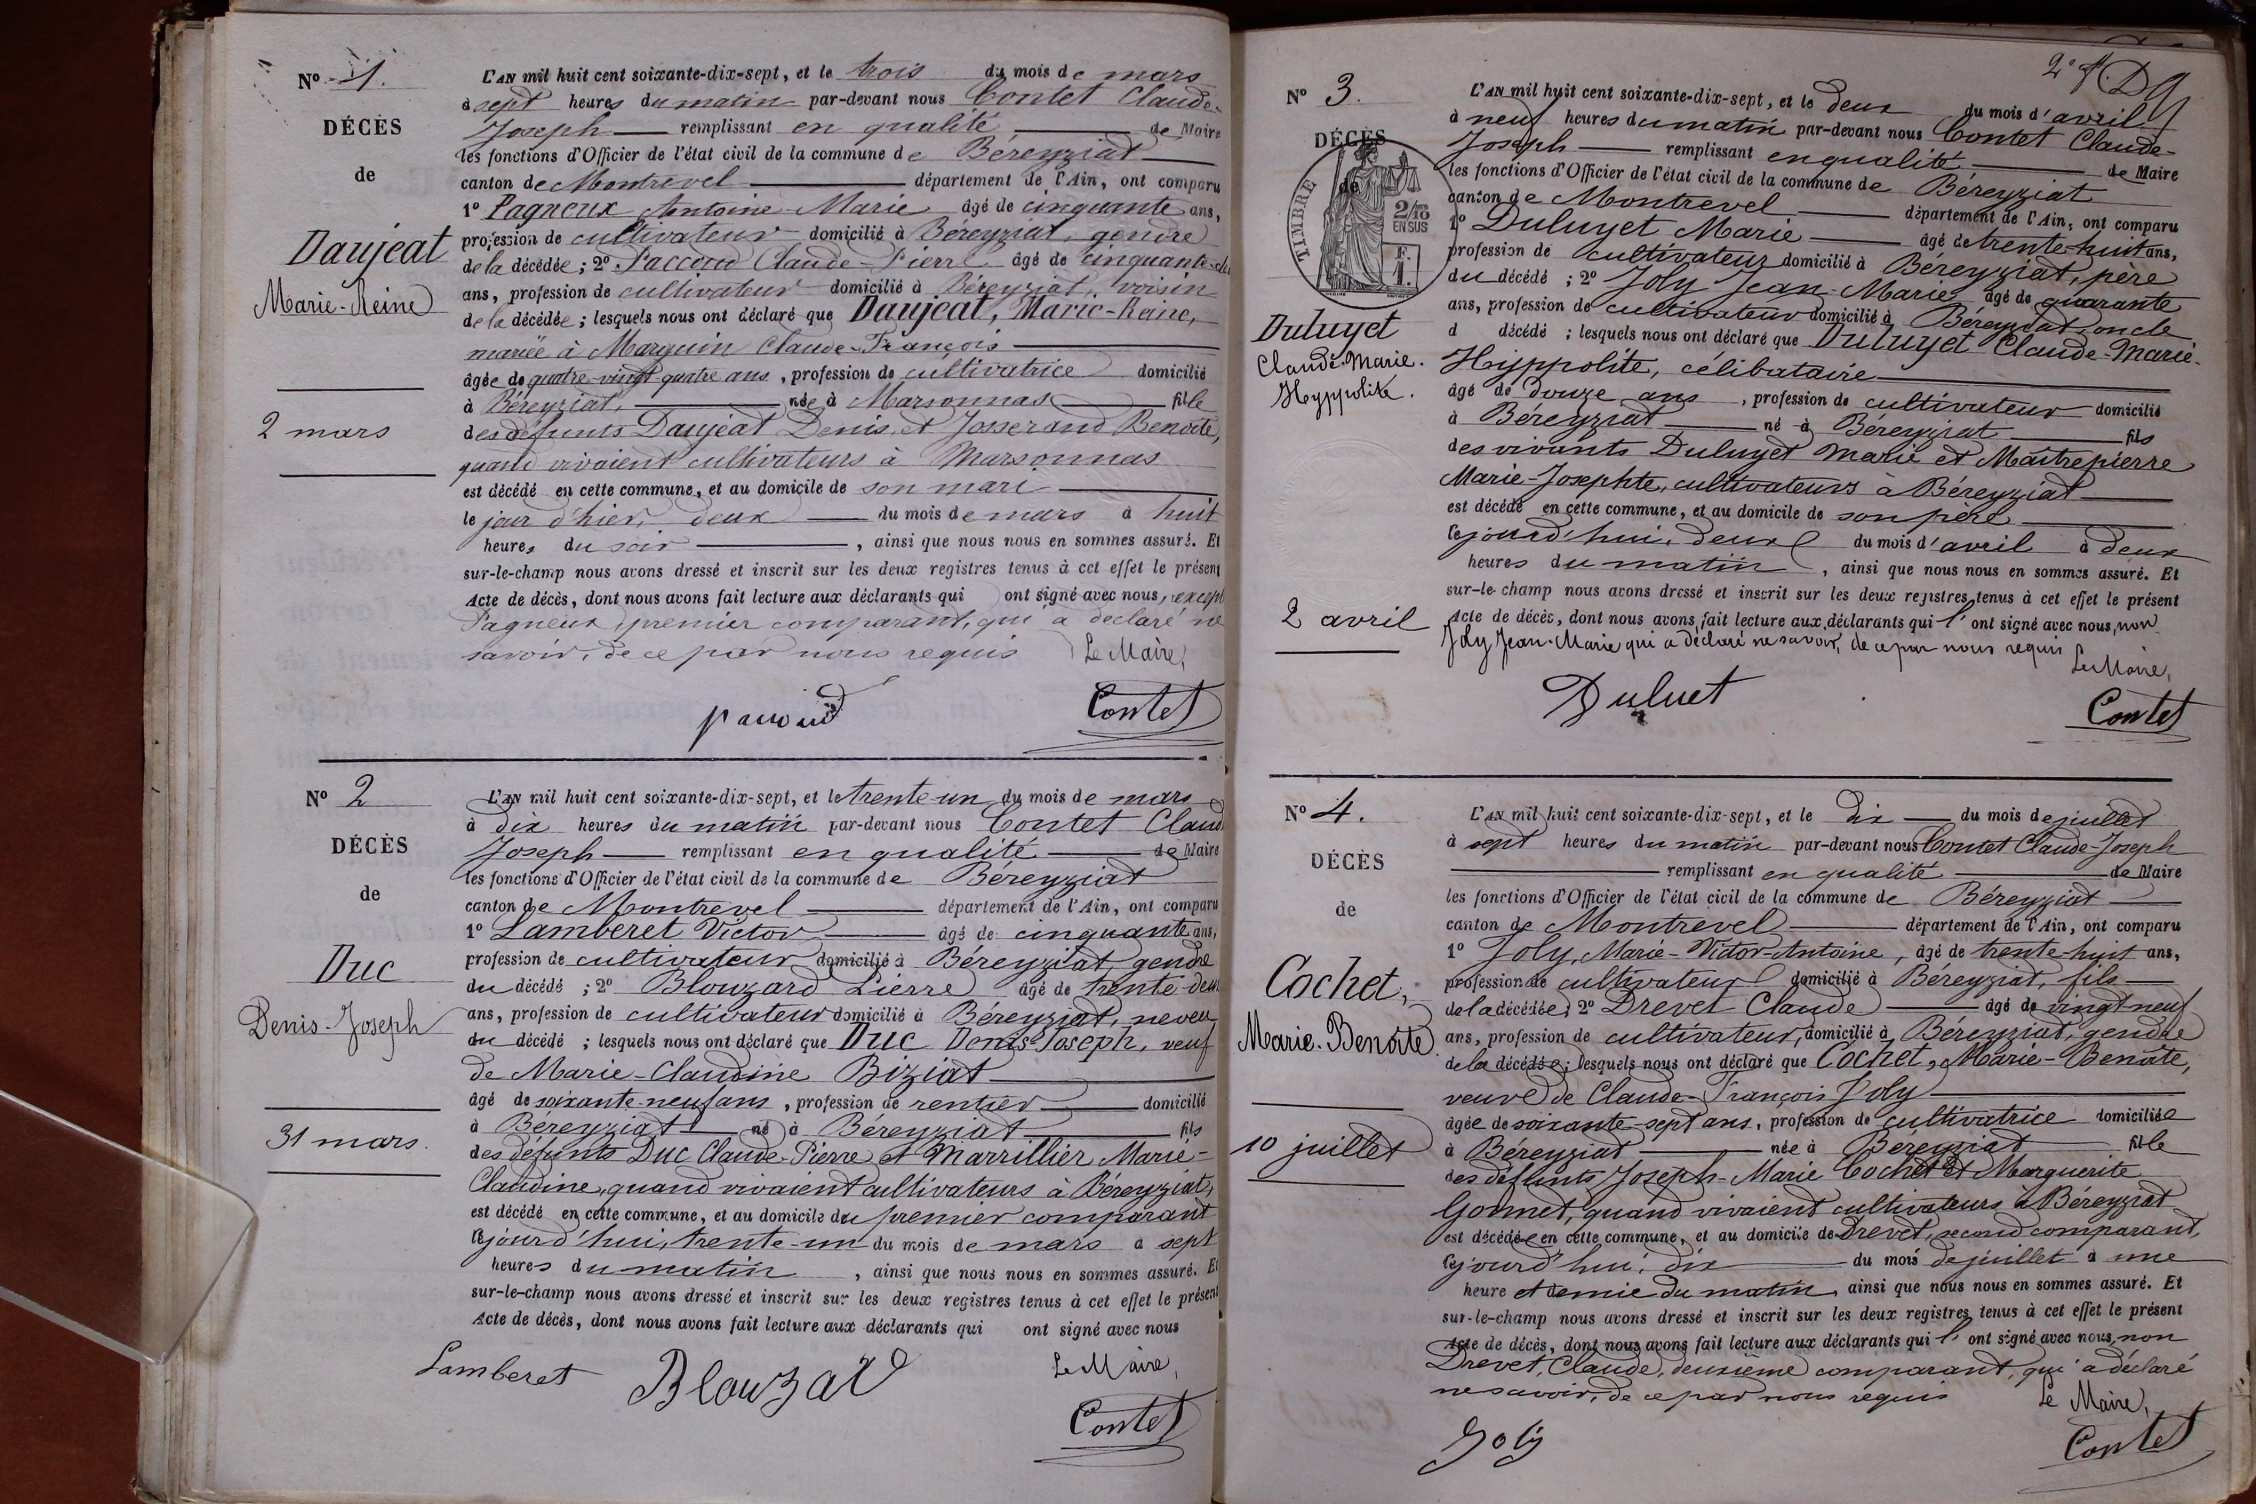 N° 1.
DÉCÈS
de
Daujeat
Marie-Reine
2 mars
L'AN mil huit cent soixante-dix-sept, et le trois du mois de mars
à sept heures du matin par-devant nous Contet Claude-
Joseph remplissant en qualité de Maire
les fonctions d'Officier de l'état civil de la commune de Béreyziat
canton de Montrevel département de l'Ain, ont comparu
1° Pagneux Antoine-Marie âgé de cinquante ans,
profession de cultivateur domicilié à Béreyziat, gendre
de la décédée ; 2° Paccoud Claude-Pierre âgé de cinquante
ans, profession de cultivateur domicilié à Béreyziat, voisin
de la décédée ; lesquels nous ont déclaré que Daujeat, Marie-Reine,
mariée à Marguin Claude-François
âgée de quatre-vingt quatre ans, profession de cultivatrice domicilié
à Béreyziat, née à Marsonnas fille
des défunts Daujeat Denis et Josserand Benoîte,
quand vivaient cultivateurs à Marsonnas
est décédé en cette commune, et au domicile de son mari
le jour d'hier, deux du mois de mars à huit
heures du soir, ainsi que nous nous en sommes assuré. Et
sur-le-champ nous avons dressé et inscrit sur les deux registres tenus à cet effet le présent
Acte de décès, dont nous avons fait lecture aux déclarants qui ont signé avec nous, excepté
Pagneux, premier comparant, qui a déclaré ne
savoir, de ce par nous requis Le Maire,
paccoud Contet
N° 2
DÉCÈS
de
Duc
Denis-Joseph
31 mars.
L'AN mil huit cent soixante-dix-sept, et le trente-un du mois de mars
à dix heures du matin par-devant nous Contet Claude
Joseph remplissant en qualité de Maire
les fonctions d'Officier de l'état civil de la commune de Béreyziat
canton de Montrevel département de l'Ain, ont comparu
1° Lamberet Victor âgé de cinquante ans,
profession de cultivateur domicilié à Béreyziat, gendre
du décédé ; 2° Blouzard Pierre âgé de trente-deux
ans, profession de cultivateur domicilié à Béreyziat, neveu
du décédé ; lesquels nous ont déclaré que Duc Denis-Joseph, veuf
de Marie-Claudine Biziat
âgé de soixante-neuf ans, profession de rentier domicilié
à Béreyziat né à Béreyziat fils
des défunts Duc Claude-Pierre et Marrillier Marie-
Claudine, quand vivaient cultivateurs à Béreyziat,
est décédé en cette commune, et au domicile du premier comparant
ce jourd'hui, trente-un du mois de mars à sept
heures du matin, ainsi que nous nous en sommes assuré. Et
sur-le-champ nous avons dressé et inscrit sur les deux registres tenus à cet effet le présent
Acte de décès, dont nous avons fait lecture aux déclarants qui ont signé avec nous
Le Maire,
Lamberet Blouzard Contet
2e f.
N° 3.
DÉCÈS
de
TIMBRE
2/10 EN SUS
F. 1.
Duluyet
Claude-Marie.
Hyppolite.
2 avril
L'AN mil huit cent soixante-dix-sept, et le deux du mois d'avril
à neuf heures du matin par-devant nous Contet Claude-
Joseph remplissant en qualité de Maire
les fonctions d'Officier de l'état civil de la commune de Béreyziat
canton de Montrevel département de l'Ain, ont comparu
1° Duluyet Marie âgé de trente-huit ans,
profession de cultivateur domicilié à Béreyziat, père
du décédé ; 2° Joly Jean-Marie âgé de quarante
ans, profession de cultivateur domicilié à Béreyziat oncle
d décédé ; lesquels nous ont déclaré que Duluyet Claude-Marie-
Hippolite, célibataire
âgé de douze ans, profession de cultivateur domicilié
à Béreyziat né à Béreyziat fils
des vivants Duluyet Marie et Maîtrepierre
Marie-Josephte, cultivateurs à Béreyziat
est décédé en cette commune, et au domicile de son père
ce jourd'hui, deux du mois d'avril à deux
heures du matin, ainsi que nous nous en sommes assuré. Et
sur-le-champ nous avons dressé et inscrit sur les deux registres tenus à cet effet le présent
Acte de décès, dont nous avons fait lecture aux déclarants qui l'ont signé avec nous, non
Joly Jean-Marie qui a déclaré ne savoir, de ce par nous requis
Le Maire,
Duluet Contet
N° 4.
DÉCÈS
de
Cochet,
Marie-Benoîte.
10 juillet
L'AN mil huit cent soixante-dix-sept, et le dix du mois de juillet
à sept heures du matin par-devant nous Contet Claude-Joseph
remplissant en qualité de Maire
les fonctions d'Officier de l'état civil de la commune de Béreyziat
canton de Montrevel département de l'Ain, ont comparu
1° Joly, Marie-Victor-Antoine, âgé de trente-huit ans,
profession de cultivateur domicilié à Béreyziat, fils
de la décédée ; 2° Drevet Claude âgé de vingt neuf
ans, profession de cultivateur, domicilié à Béreyziat, gendre
de la décédée ; lesquels nous ont déclaré que Cochet, Marie-Benoîte,
veuve de Claude-François Joly
âgée de soixante-sept ans, profession de cultivatrice domiciliée
à Béreyziat née à Béreyziat fille
des défunts Joseph-Marie Cochet et Marguerite
Gonnet, quand vivaient cultivateurs à Béreyziat
est décédée en cette commune, et au domicile de Drevet, second comparant,
ce jourd'hui, dix du mois de juillet à une
heure et demie du matin, ainsi que nous nous en sommes assuré. Et
sur-le-champ nous avons dressé et inscrit sur les deux registres tenus à cet effet le présent
Acte de décès, dont nous avons fait lecture aux déclarants qui l'ont signé avec nous, non
Drevet, Claude, deuxième comparant, qui a déclaré
ne savoir, de ce par nous requis Le Maire,
Joly Contet